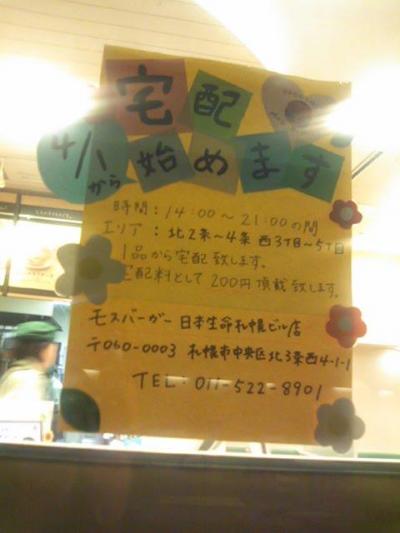 宅配
4/1から
始めます
時間：14:00〜21:00の間
エリア：北2条〜4条 西3丁目〜5丁目
1品から宅配致します。
宅配料として200円頂戴致します。
モスバーガー 日本生命札幌ビル店
〒060-0003 札幌市中央区北3条西4-1-1
TEL・011-522-8901